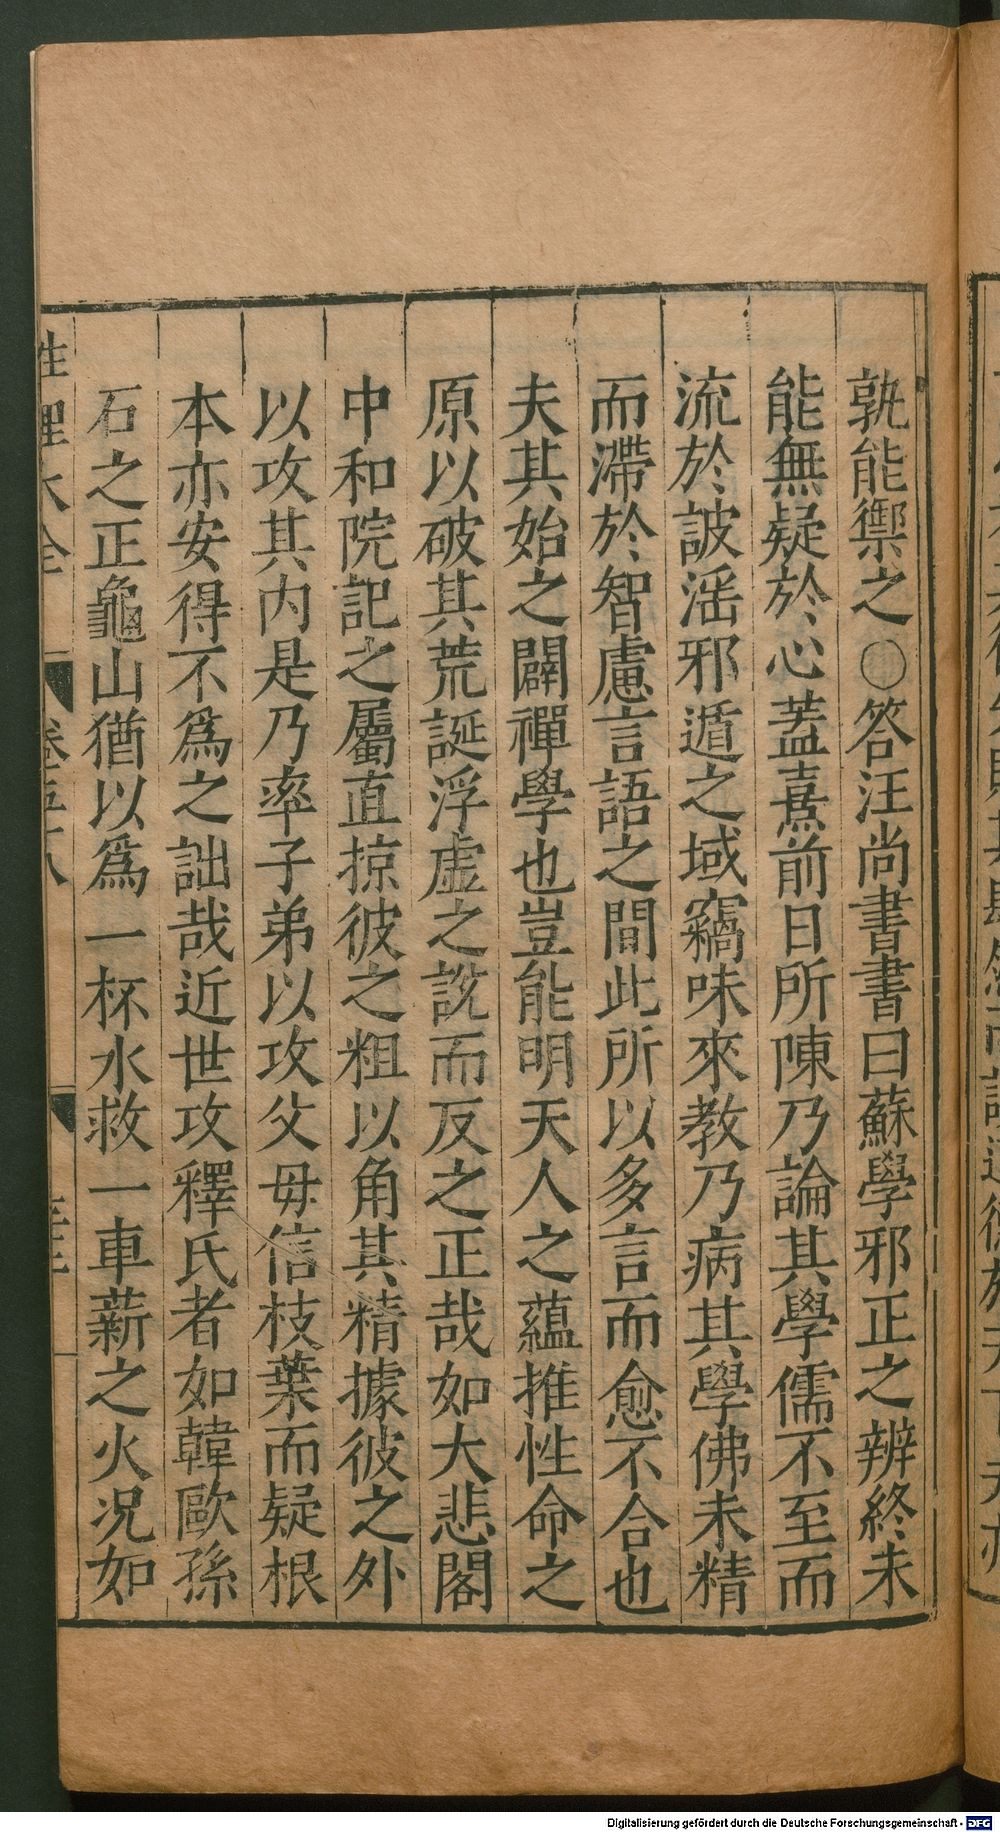 孰能禦之○答汪尚書書曰蘇學邪正之辨終未
能無疑於心蓋熹前日所陳乃論其學儒不至而
流於詖淫邪遁之域竊味來教乃病其學佛未精
而滯於智慮言語之間此所以多言而愈不合也
夫其始之闢禪學也豈能明天人之蘊推性命之
原以破其荒誕浮虛之說而反之正哉如大悲閣
中和院記之屬直掠彼之粗以角其精據彼之外
以攻其內是乃率子弟以攻父母信枝葉而疑根
本亦安得不爲之詘哉近世攻釋氏者如韓歐孫
石之正龜山猶以爲一杯水救一車薪之火況如
性理大全 卷五十八
Digitalisierung gefördert durch die Deutsche Forschungsgemeinschaft - DFG